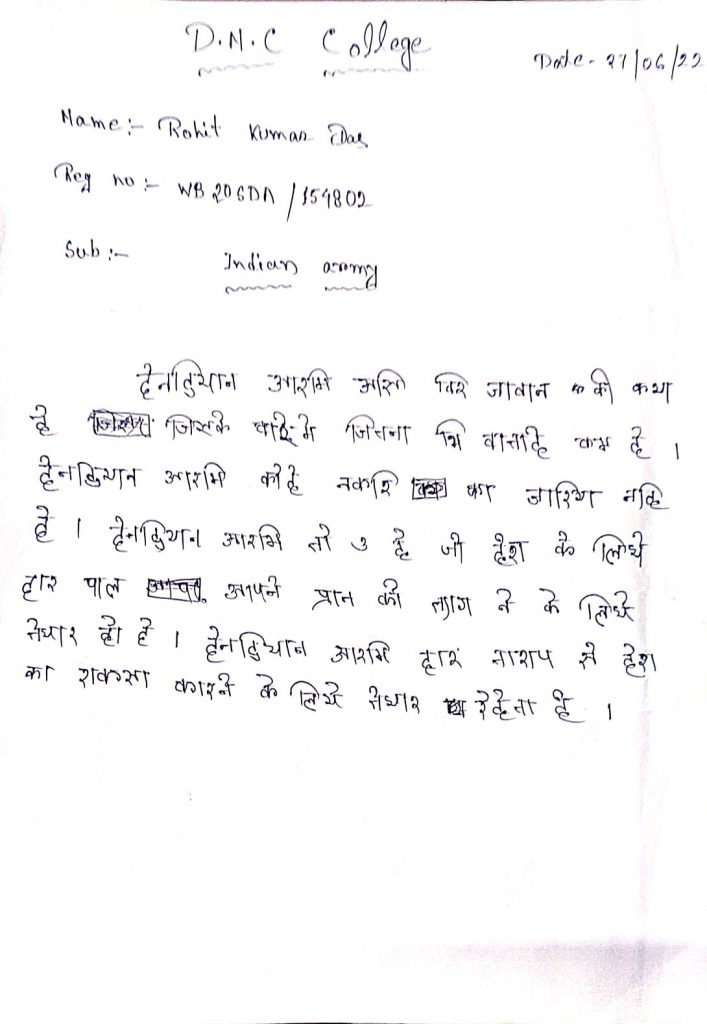 D.N.C College
Date - 27/06/22
Name:- Rohit Kumar Das
Reg no:- WB20GDA/154802
Sub:- Indian army
हेनडियान आरमि असि विर जावान की कथा
हे जिसके बारे मे जितना भि बाताहे कम हे ।
हेनडियान आरमि कोहे नकरि का जारिया नहि
हे । हेनडियान आरमि तो ३ हे जो देश के लिये
हार पाल आपने प्रान को त्याग ने के लिये
तेयार हो हे । हेनडियान आरमि हार ताराप से देश
का राकसा कारने के लिये तेयार रेहेता हे ।